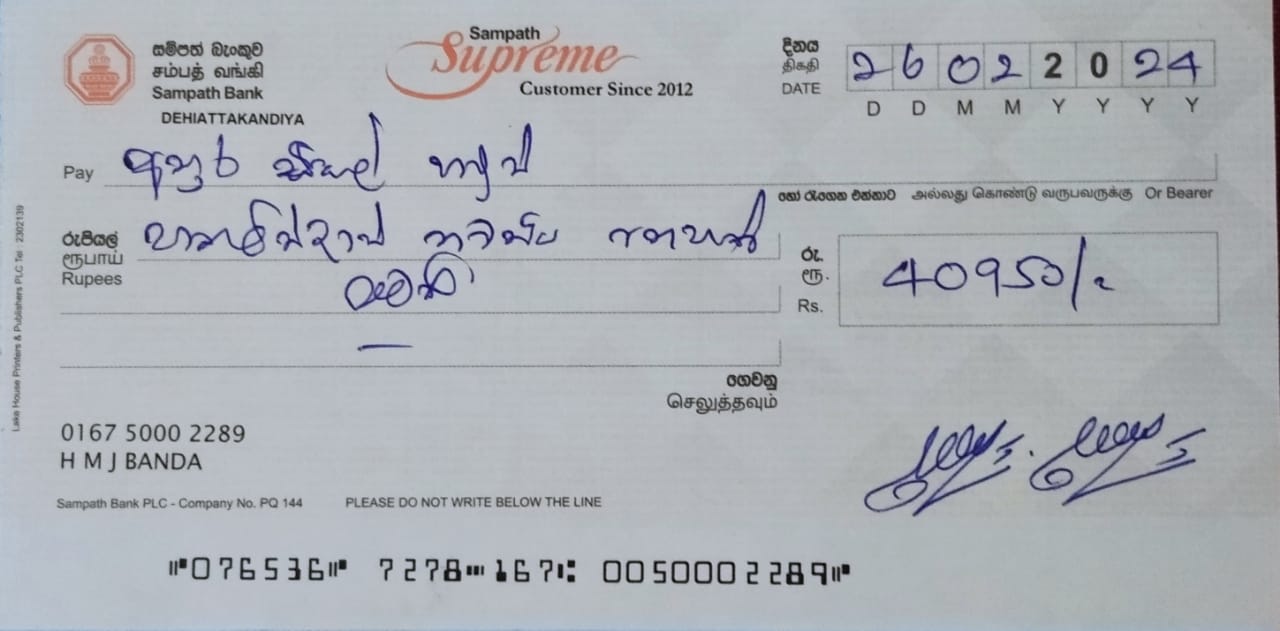 සම්පත් බැංකුව
சம்பத் வங்கி
Sampath Bank
DEHIATTAKANDIYA
Sampath
Supreme
Customer Since 2012
දිනය
திகதி
DATE
26 02 2024
D D M M Y Y Y Y
Pay අතුර සියල්
හෝ රැගෙන එන්නාට அல்லது கொண்டு வருபவருக்கு Or Bearer
රුපියල්
ரூபாய்
Rupees
රු.
ரூ.
Rs.
40950/-
ගෙවනු
செலுத்தவும்
0167 5000 2289
H M J BANDA
Sampath Bank PLC - Company No. PQ 144 PLEASE DO NOT WRITE BELOW THE LINE
⑈076536⑈ 7278⑉167⑆ 0050002289⑈
Lake House Printers & Publishers PLC Tel : 2302139